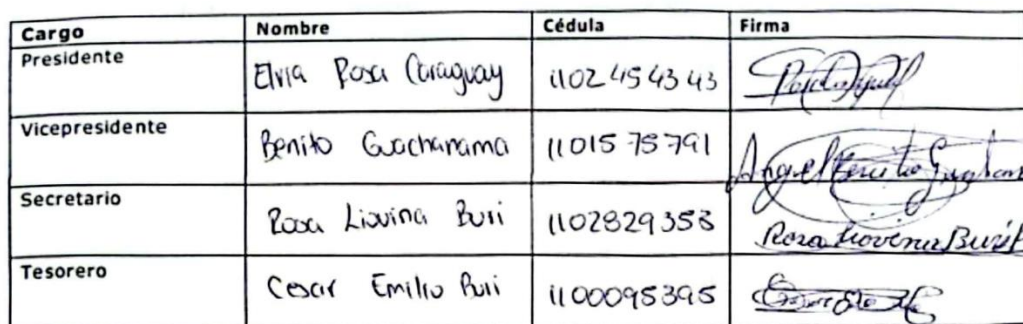 Cargo Nombre Cédula Firma
Presidente Elvia Rosa Caraguay 1102454343
Vicepresidente Benito Guachanama 1101575791 Angel Benito
Secretario Rosa Liovina Buri 1102829353 Rosa Liovina Buri
Tesorero Cesar Emilio Buri 1100095395